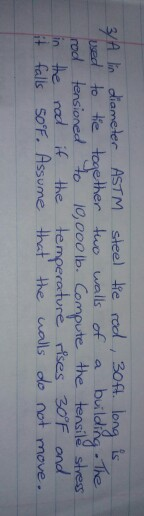 3/A in diameter ASTM steel tie rod, 30ft. long is
used to tie together two walls of a building. The
rod tensioned to 10,000lb. Compute the tensile stress
in the rod if the temperature rises 30°F and
it falls 50°F. Assume that the walls do not move.